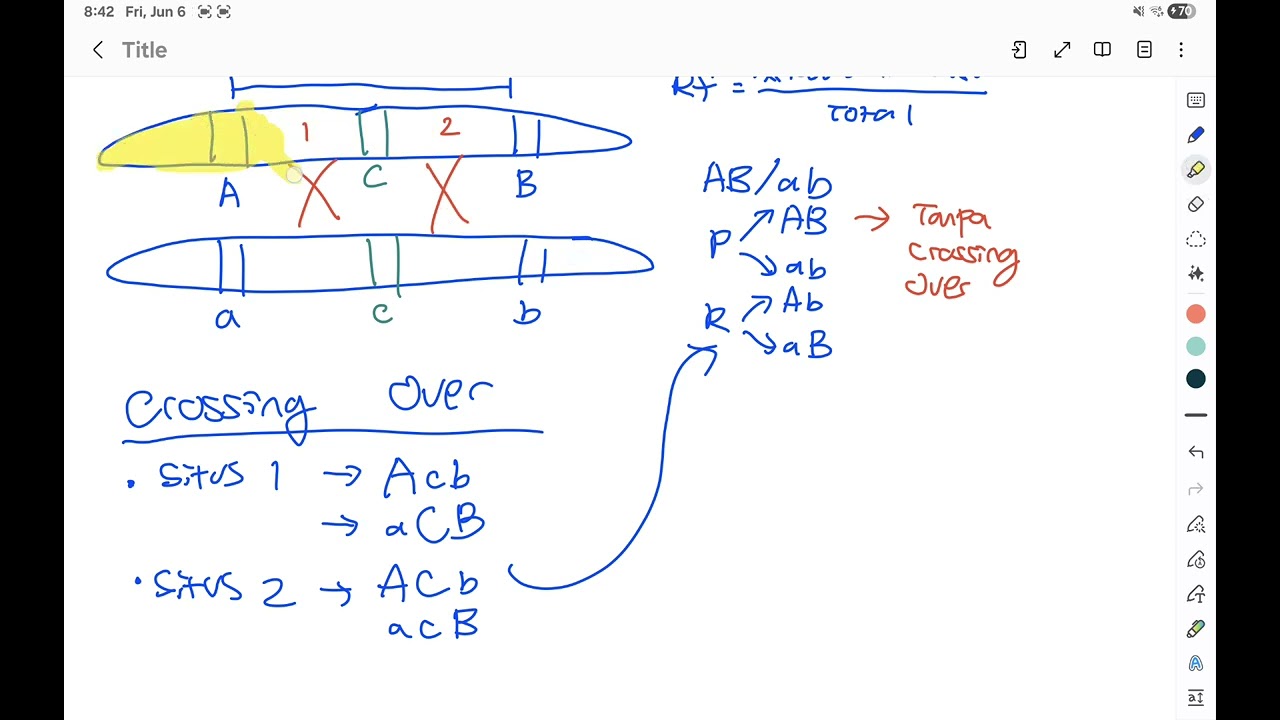 8:42 Fri, Jun 6
70
Title
1
2
A
C
B
a
c
b
Rf =
Total
AB/ab
P AB → Tanpa
Crossing
Over
ab
R Ab
aB
Crossing Over
• Situs 1 → Acb
→ aCB
• Situs 2 → ACb
acB